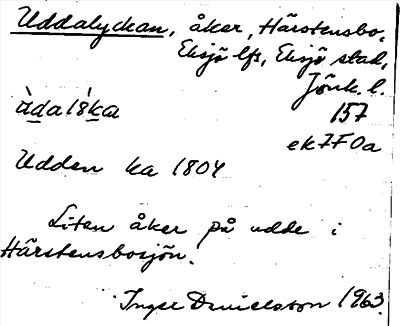 Uddalyckan, åker, Härstensbo,
Eksjö lfs, Eksjö stad,
Jönk. l.
àda lỳka 157
ek 7F0a
Udden ka 1804
Liten åker på udde i
Härstensbosjön.
Inger Danielsson 1963.